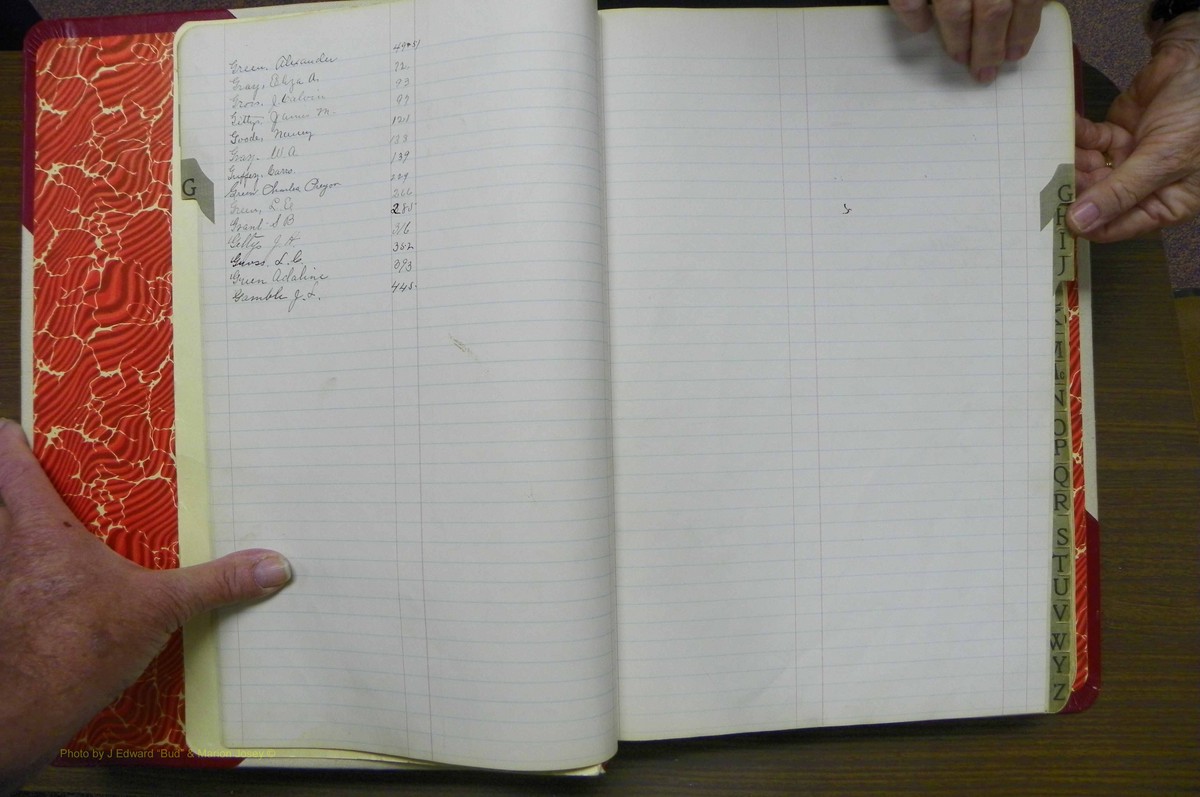 Green, Alexander 49+51
Gray, Eliza A. 72
Gross, J. Calvin 93
Gettys, James M. 99
Goode, Nancy 121
Gray, W. A. 133
Guffey, 139
Green Charles Pryor 229
Green, L. E. 266
Grant S B 285
Gettys J. H 316
Gross. L. C. 382
Green Adaline 393
Gamble J. L. 445
G
G
H
I
J
K
M
Mc
N
O
P
Q
R
S
T
U
V
W
Y
Z
Photo by J Edward "Bud" & Marion Josey ©